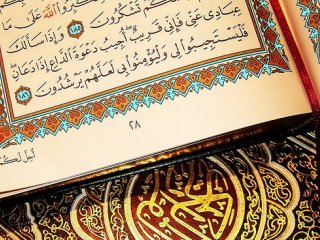 كَبِّرُوا اللَّهَ عَلَىٰ مَا
تَشْكُرُونَ ١٨٥ وَإِذَا سَأَلَكَ
عِبَادِي عَنِّي فَإِنِّي قَرِيبٌ أُجِيبُ دَعْوَةَ الدَّاعِ إِذَا دَعَانِ
فَلْيَسْتَجِيبُوا لِي وَلْيُؤْمِنُوا بِي لَعَلَّهُمْ يَرْشُدُونَ ١٨٦
٢٨
أُحِلَّ لَكُمْ